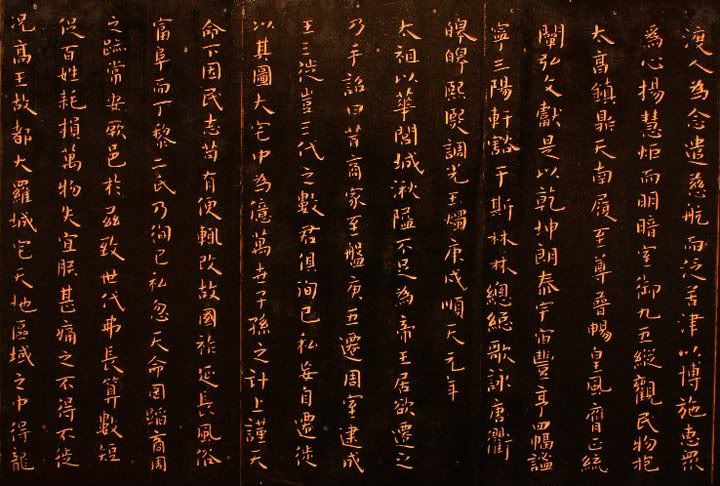 渡人為念遣慈航而泛苦津以博施惠眾
為心揚慧炬而明暗室御九五縱觀民物抱
大高鎮鼎天南履至尊普暢皇風膺正統
闡弘文獻是以乾坤朗泰宇宙豐亨四幅謐
寧三陽軒豁于斯林林總總歌詠唐衢
皥皥熙熙調光玉燭庚戌順天元年
太祖以華閭城湫隘不足為帝王居欲遷之
乃手詔曰昔商家至盤庚五遷周室逮成
王三徙豈三代之數君俱徇己私妄自遷徙
以其圖大宅中為億萬世子孫之計上謹天
命下因民志苟有便輒改故國祚延長風俗
富阜而丁黎二氏乃徇己私忽天命罔蹈商周
之跡常安厥邑於茲致世代弗長算數短
促百姓耗損萬物失宜朕甚痛之不得不徙
況高王故都大羅城宅天地區域之中得龍